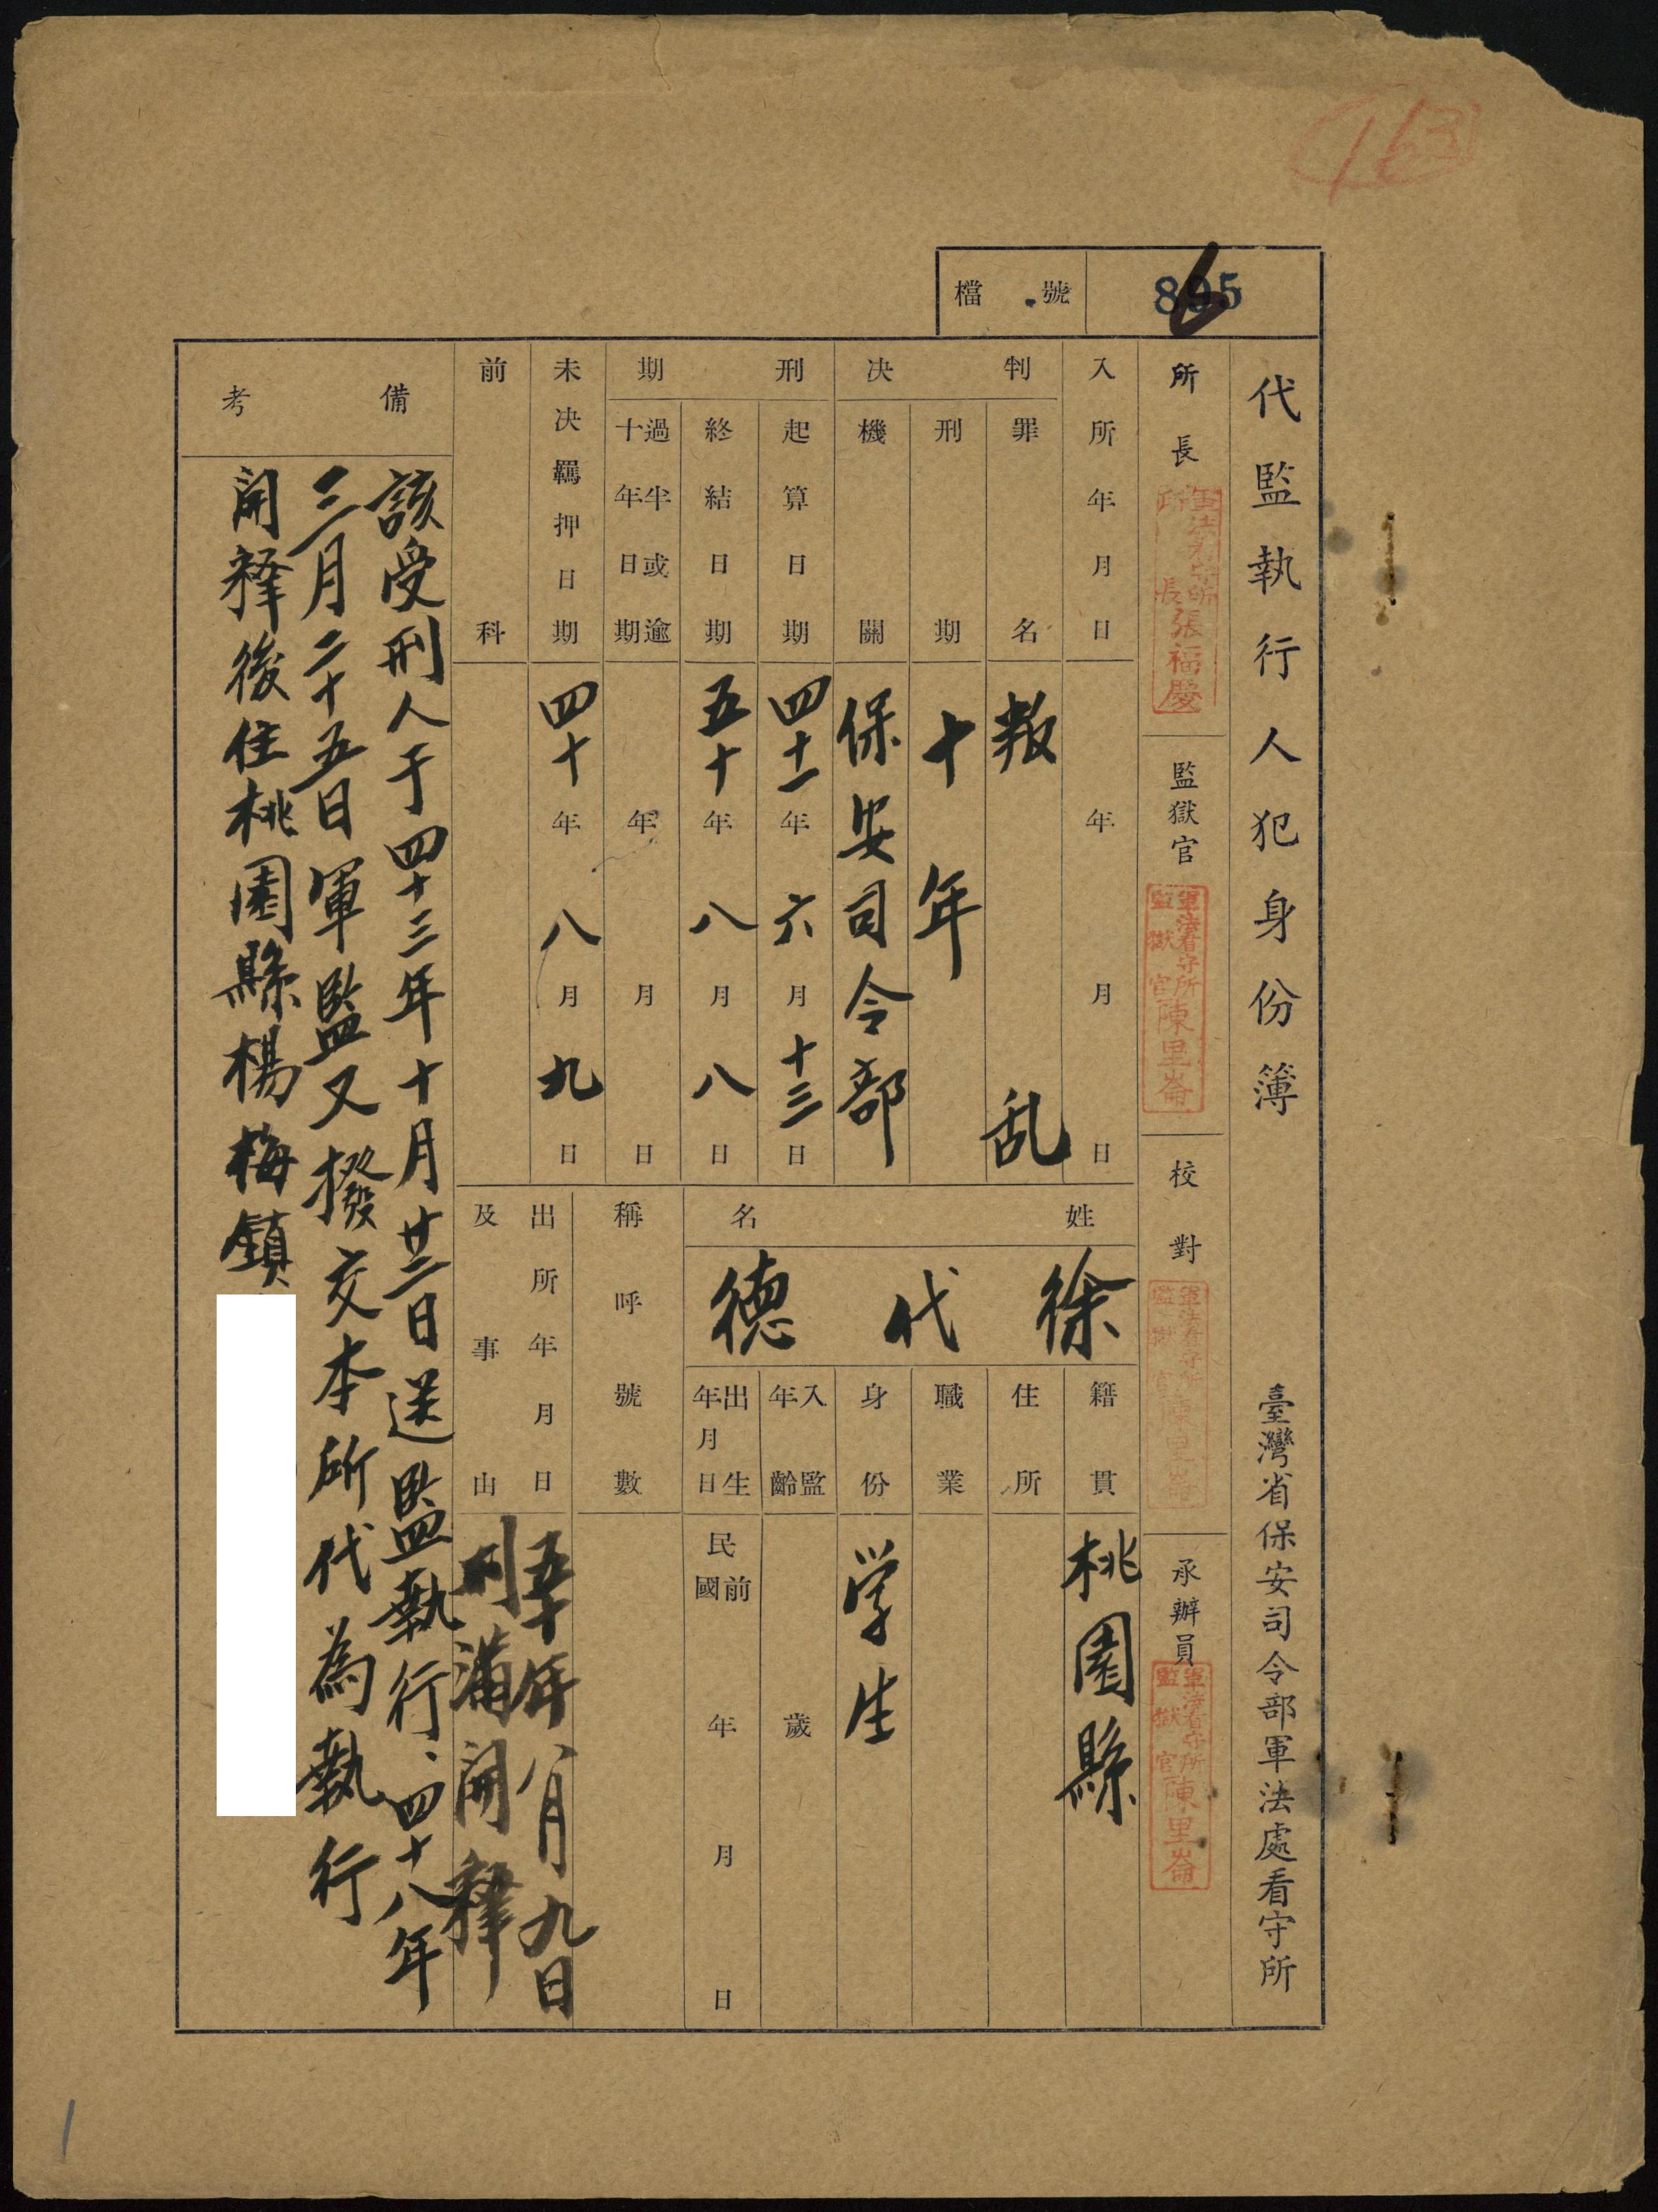 163
檔號
895
6
代監執行人犯身份簿
臺灣省保安司令部軍法處看守所
所長
軍法看守所所長張福慶
監獄官
軍法看守所監獄官陳里崙
校對
軍法看守所監獄官陳里崙
承辦員
軍法看守所監獄官陳里崙
入所年月日
年月日
判決
罪名
叛乱
刑期
十年
機關
保安司令部
刑期
起算日期
四十一年六月十三日
終結日期
五十年八月八日
過半或逾十年日期
年月日
未決羈押日期
四十年八月九日
前科
姓名
徐代德
籍貫
桃園縣
住所
職業
身份
学生
入監年齡
歲
出生年月日
民國前年月日
稱呼號數
出所年月日及事由
五十年八月九日
刑滿開釋
備考
該受刑人于四十三年十月廿三日送監執行、四十八年
三月二十五日軍監又撥交本所代為執行
開釋後住桃園縣楊梅鎮